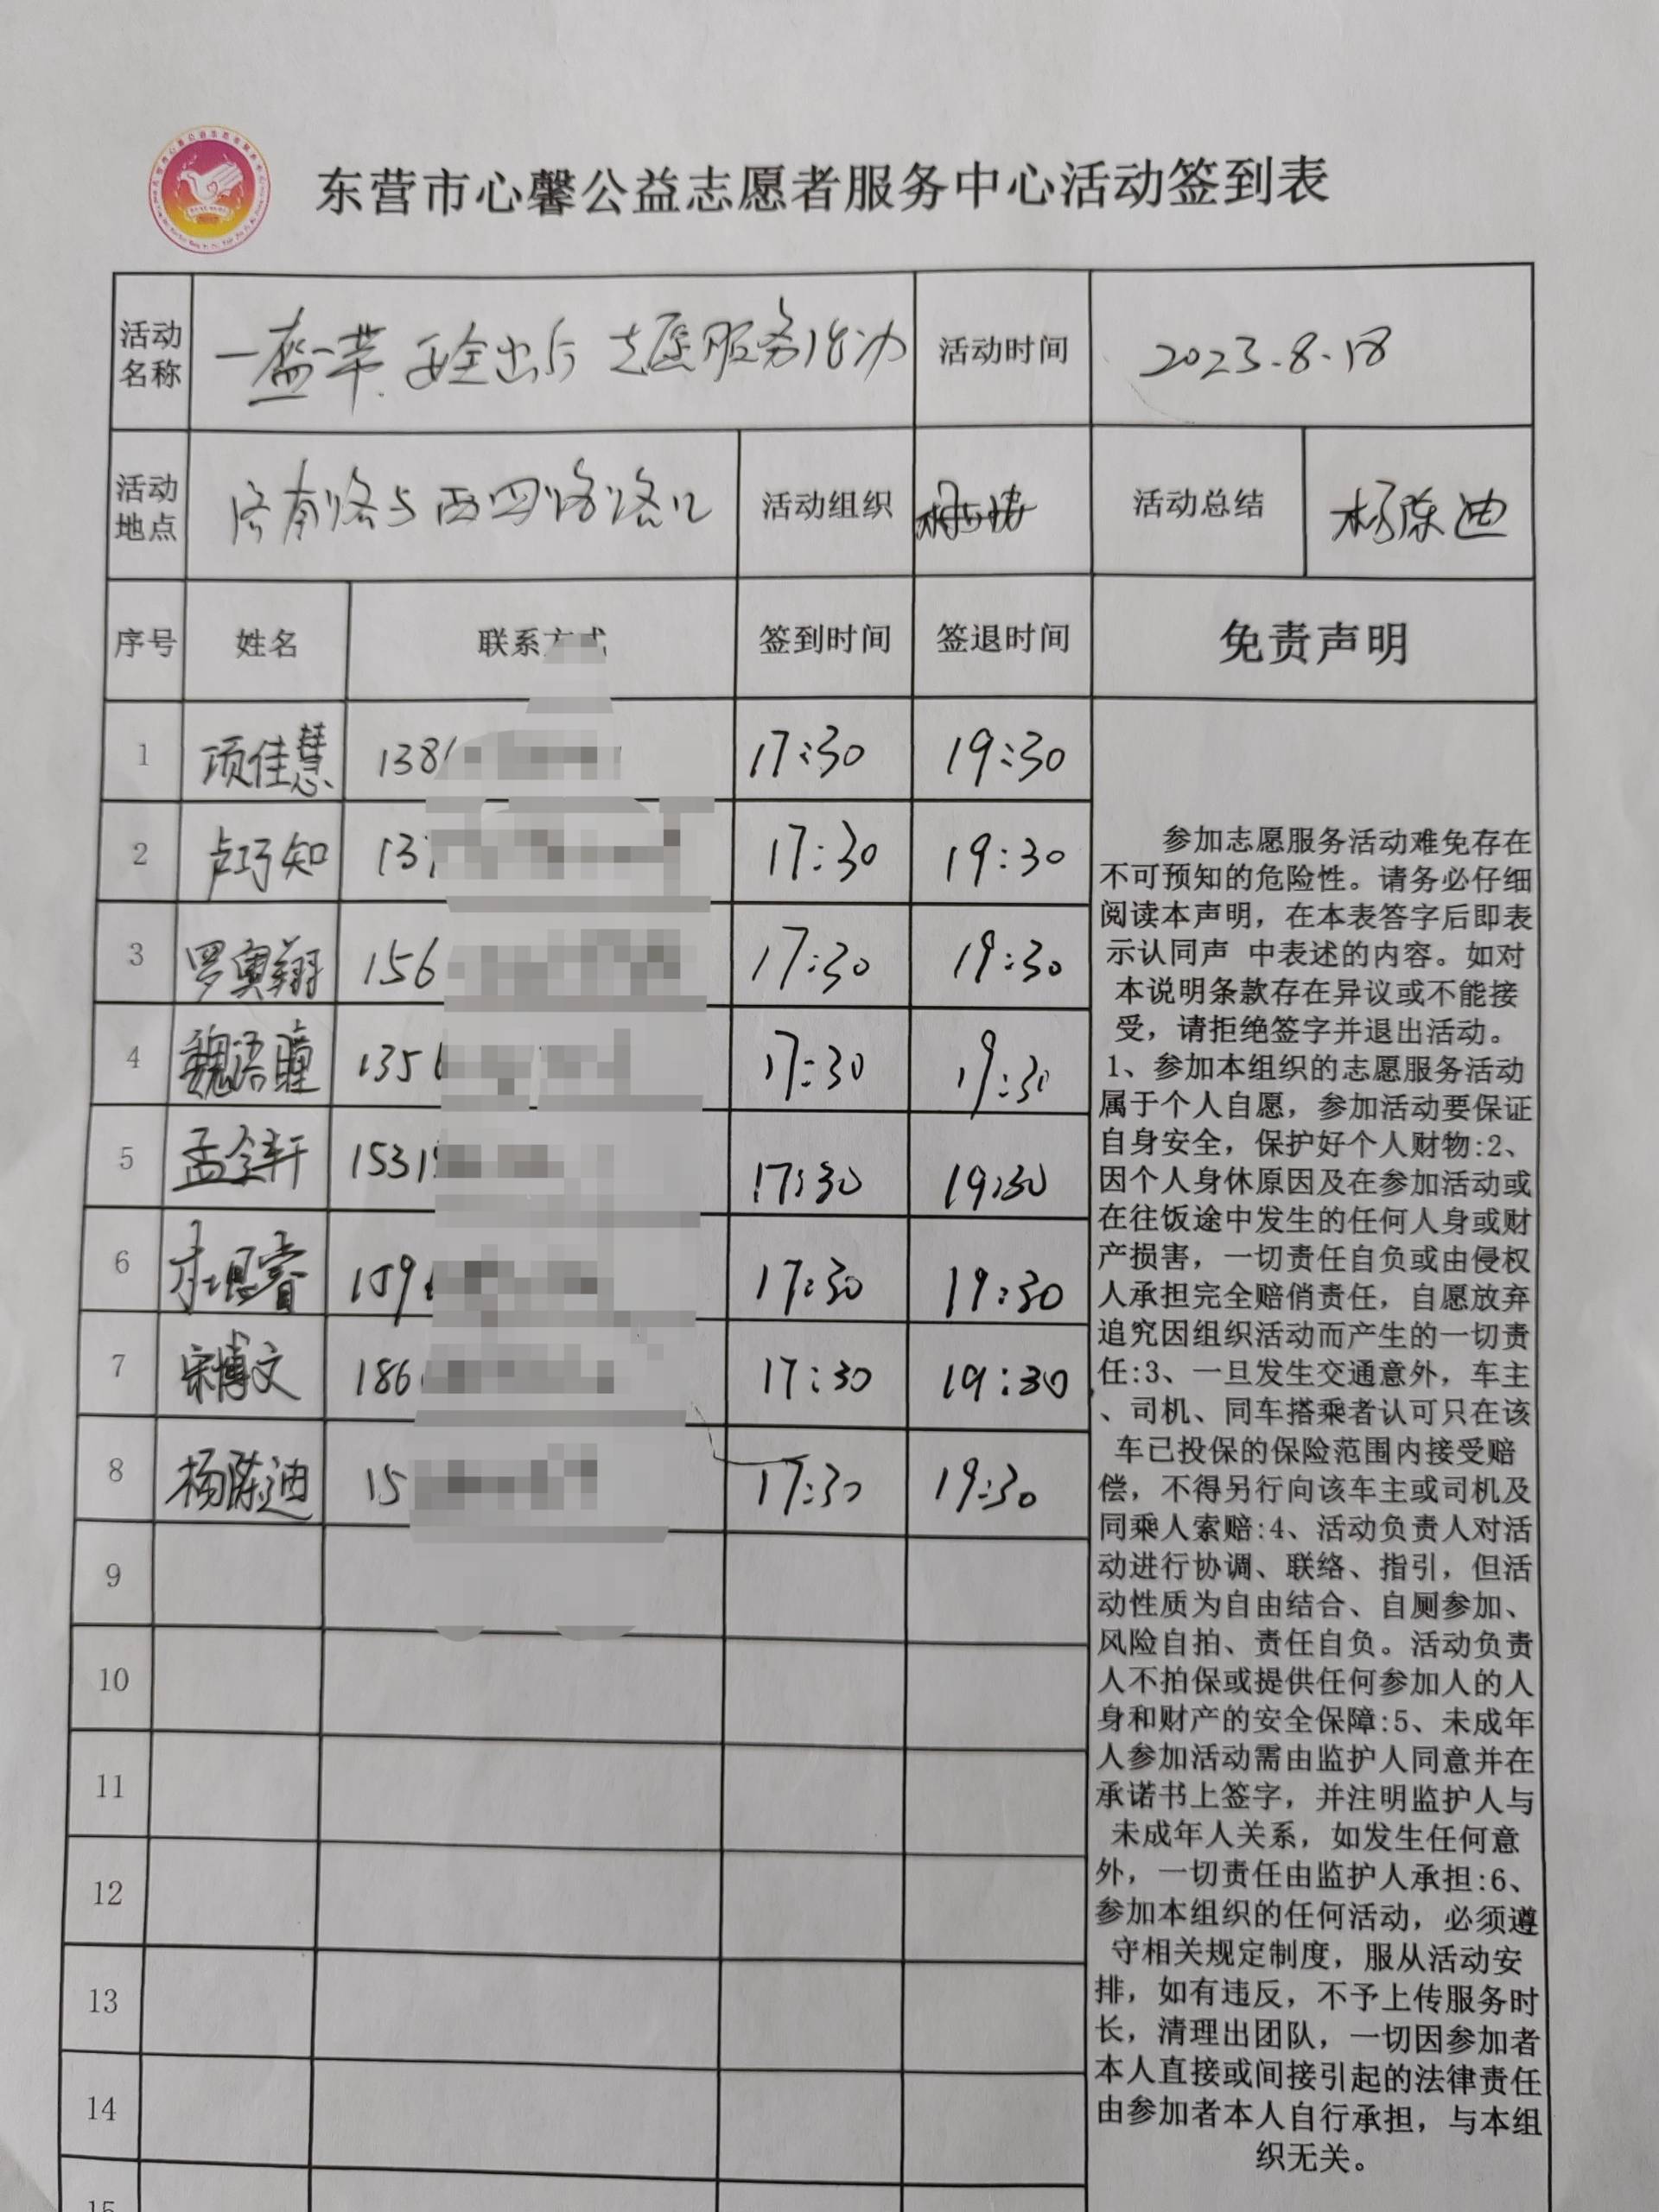 东营市心馨公益志愿者服务中心活动签到表
活动名称 一盔一带 安全出行 志愿服务活动 活动时间 2023.8.18
活动地点 济南路与西四路路口 活动组织 活动总结 杨陈迪
序号 姓名 联系方式 签到时间 签退时间 免责声明
1 项佳慧 138 17:30 19:30
2 卢巧知 137 17:30 19:30
3 罗奥翔 156 17:30 19:30
4 魏语瞳 1356 17:30 19:30
5 孟令轩 1531 17:30 19:30
6 159 17:30 19:30
7 宋博文 186 17:30 19:30
8 杨陈迪 15 17:30 19:30
9
10
11
12
13
14
15
参加志愿服务活动难免存在
不可预知的危险性。请务必仔细
阅读本声明，在本表答字后即表
示认同声 中表述的内容。如对
本说明条款存在异议或不能接
受，请拒绝签字并退出活动。
1、参加本组织的志愿服务活动
属于个人自愿，参加活动要保证
自身安全，保护好个人财物:2、
因个人身休原因及在参加活动或
在往饭途中发生的任何人身或财
产损害，一切责任自负或由侵权
人承担完全赔俏责任，自愿放弃
追究因组织活动而产生的一切责
任:3、一旦发生交通意外，车主
、司机、同车搭乘者认可只在该
车已投保的保险范围内接受赔
偿，不得另行向该车主或司机及
同乘人索赔:4、活动负责人对活
动进行协调、联络、指引，但活
动性质为自由结合、自厕参加、
风险自拍、责任自负。活动负责
人不拍保或提供任何参加人的人
身和财产的安全保障:5、未成年
人参加活动需由监护人同意并在
承诺书上签字，并注明监护人与
未成年人关系，如发生任何意
外，一切责任由监护人承担:6、
参加本组织的任何活动，必须遵
守相关规定制度，服从活动安
排，如有违反，不予上传服务时
长，清理出团队，一切因参加者
本人直接或间接引起的法律责任
由参加者本人自行承担，与本组
织无关。